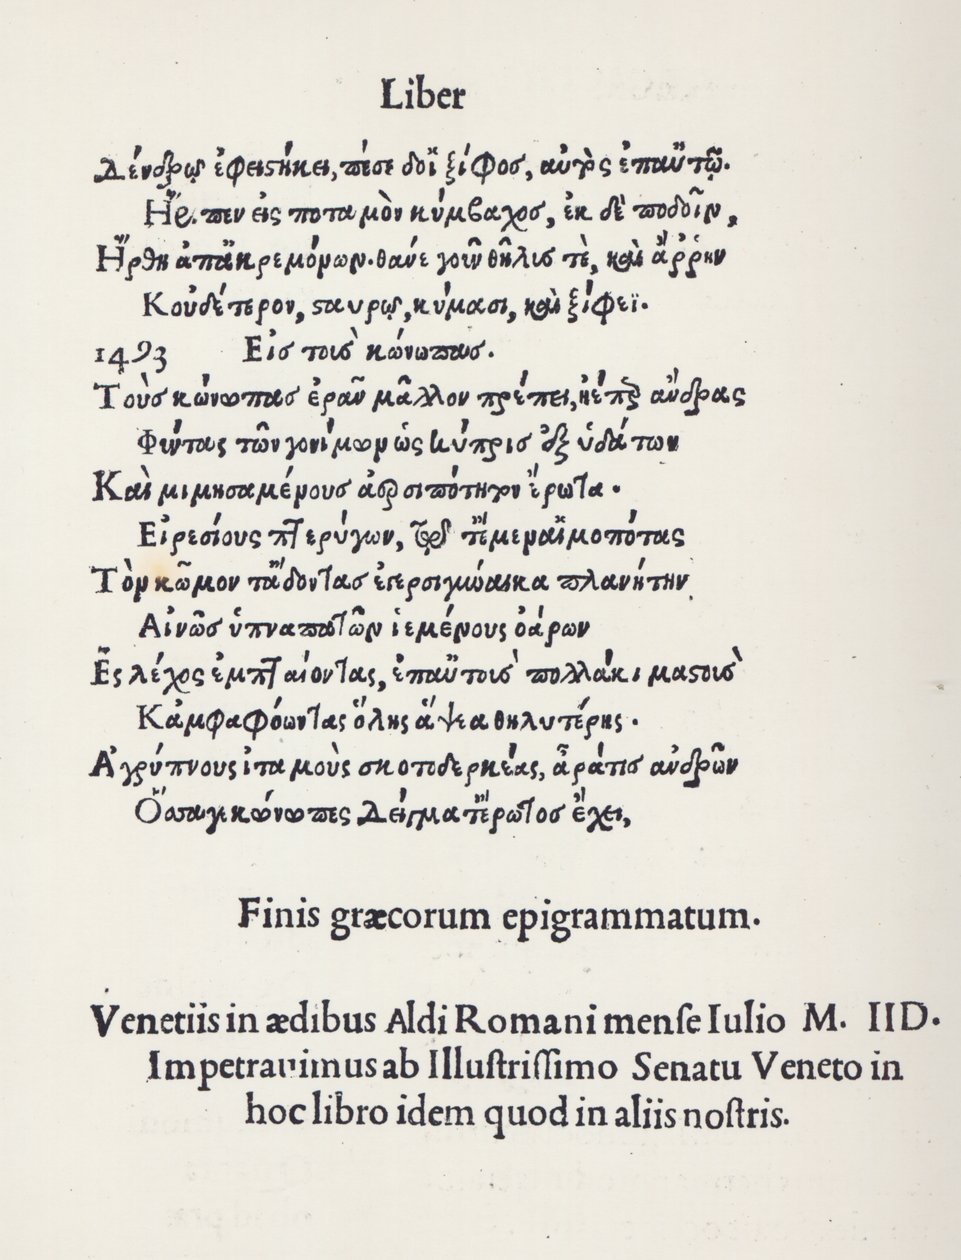 Liber
Δένδρῳ ἐφειστήκει, πέσε δοἲ ξίφος, αὐτὸς ἐπαὔτῷ.
Ἤριπεν εἰς ποταμὸν κύμβαχος, ἐκ δὲ ποδοῖιν,
Ἤρθη ἀπἂκρεμόνων. θανέ γοῦν θῆλυς τὲ, καὶ ἄῤῥην
Κοὐδέτερον, σταυρῳ, κύμασι, καὶ ξίφεϊ.
1493 Εἰς τοὺς κώνωπας.
Τοὺς κώνωπας ἐρᾶν μᾶλλον πρέπει, ἠέπερ ἄνδρας
Φύντας τῶν γονίμων ὡς κύπρις ἐξ ὑδάτων
Καὶ μιμησαμένους ἀεροσιπότητον ἔρωτα.
Εἰρεσίους πτερύγων, τἢμεραἳμοπότας
Τὸν κῶμον τᾂδοντας ἐπερσιγύναικα πλανήτην
Αἰνῶς ὑπναπατῶν ἱεμένους ὀάρων
Ἒς λέχος ἐμπταίοντας, ἐπαὔτοις πολλάκι μαστοὺς
Κἀμφαφόωντας ὅλης ἅψεα θηλυτέρης.
Ἀγρύπνους ἰταμοὺς σκοτοδερκέας, ἆράτις ἀνδρῶν
Ὅσσαγε κώνωπες Δείγματἒρωτος ἔχει,
Finis græcorum epigrammatum.
Venetiis in ædibus Aldi Romani menſe Iulio M. IID.
Impetravimus ab Illuſtriſſimo Senatu Veneto in
hoc libro idem quod in aliis noſtris.